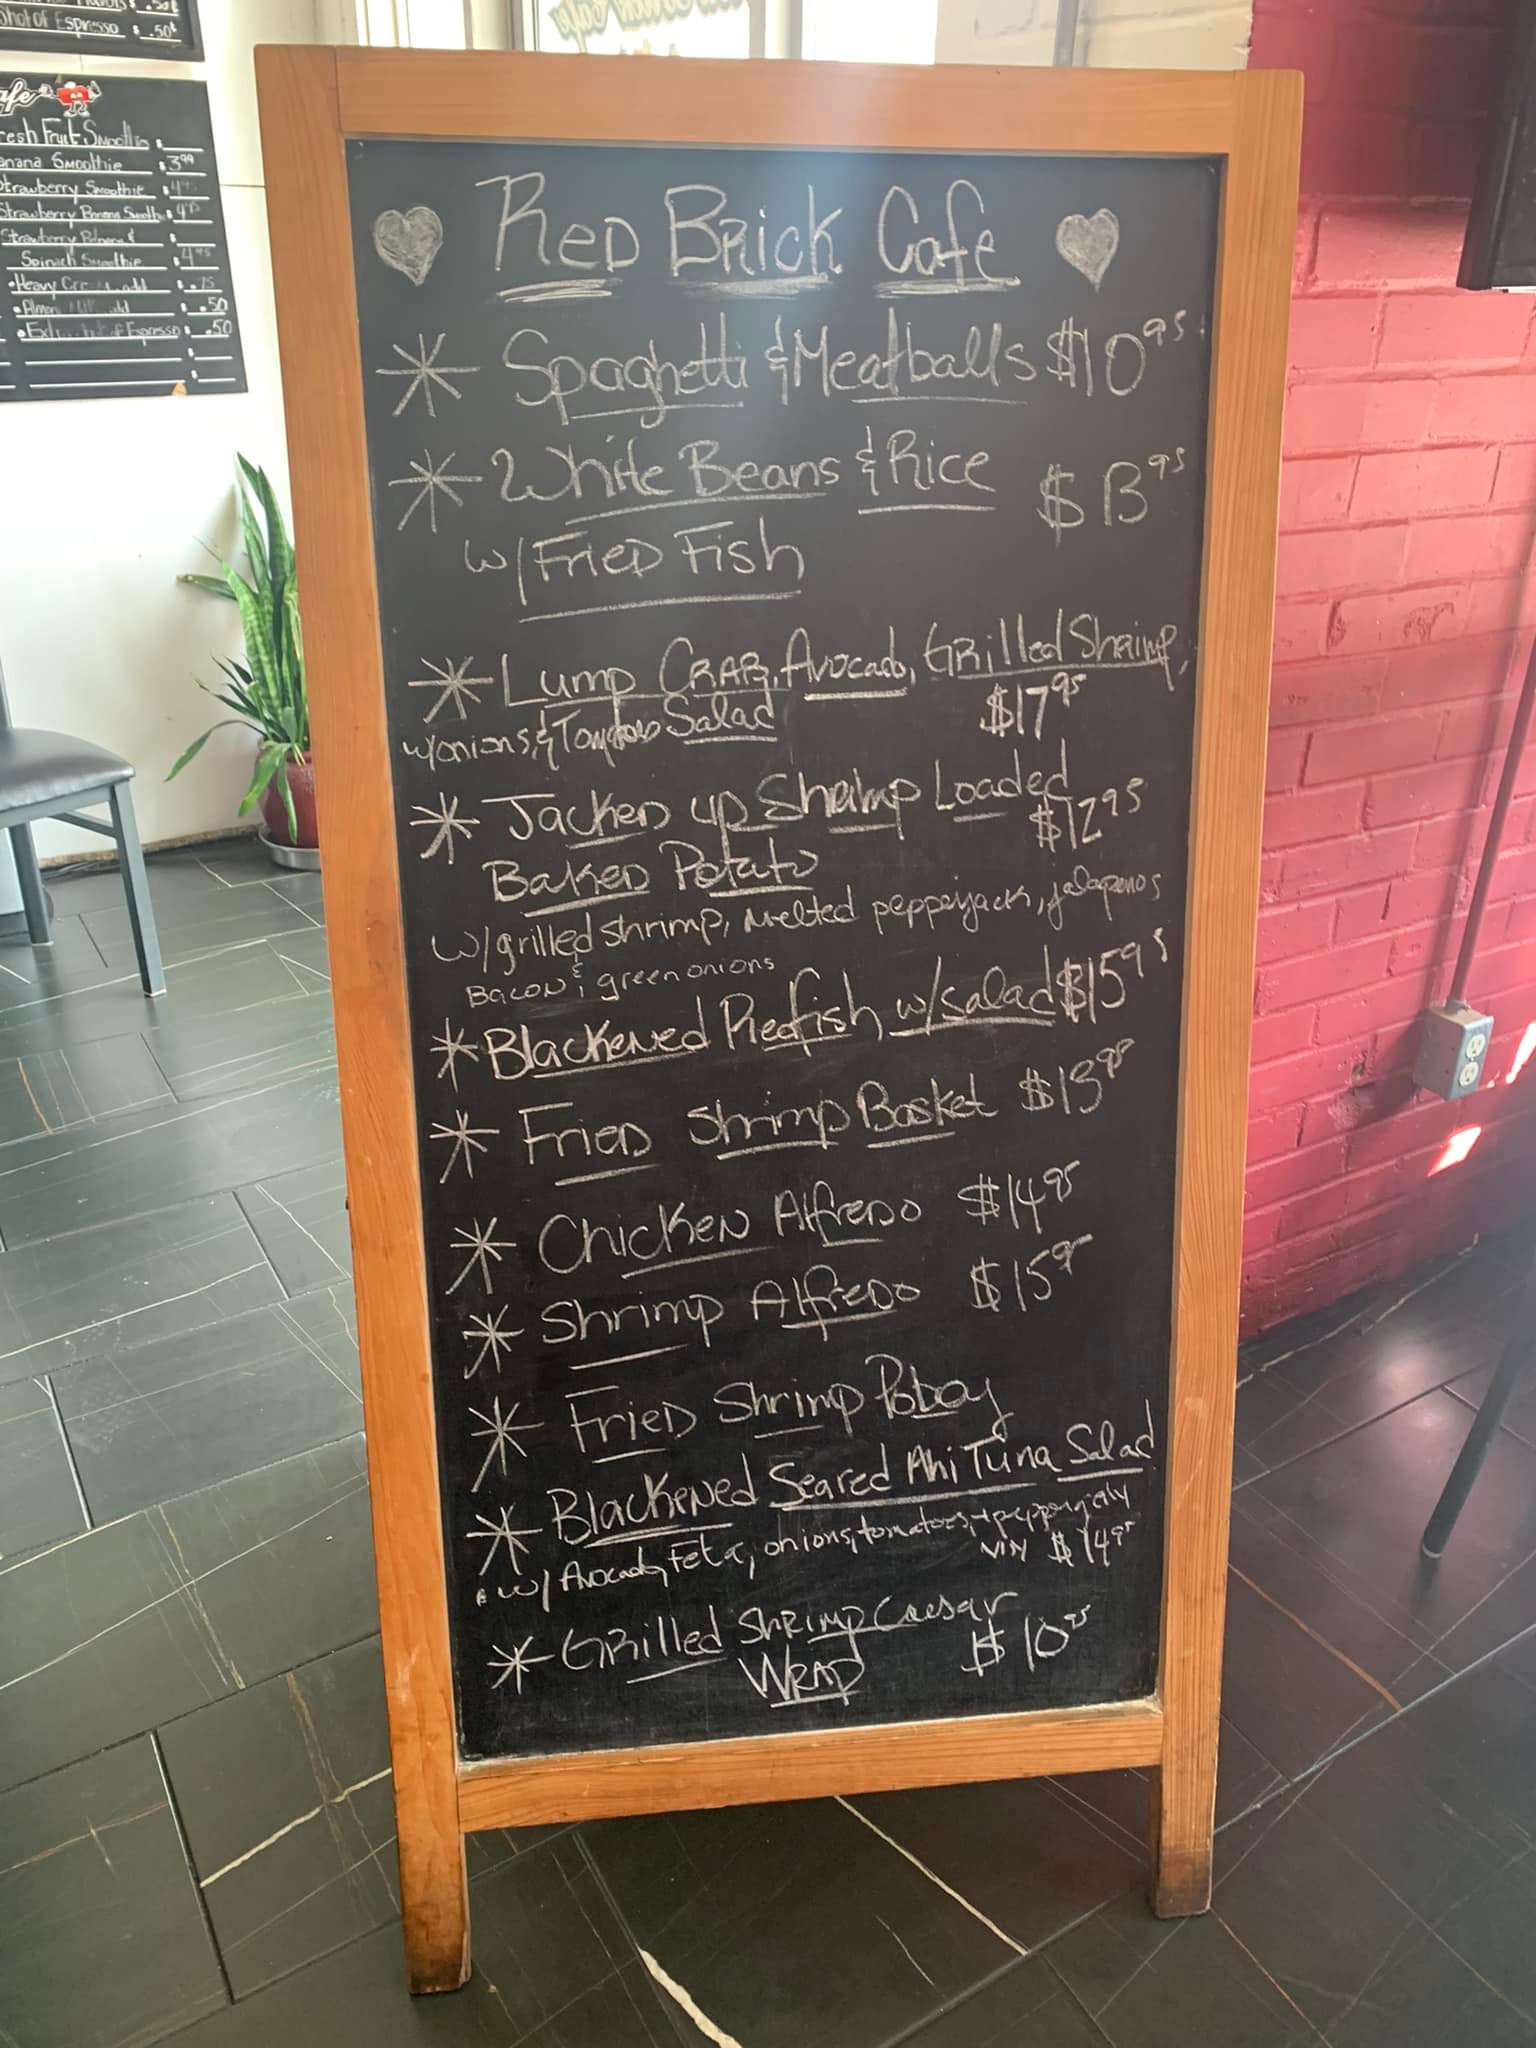 Shot of Espresso $ .50¢
Fresh Fruit Smoothie $
Banana Smoothie $3.99
Strawberry Smoothie $4
Strawberry Banana Smoothie $4
Strawberry Banana &
Spinach Smoothie $4.95
• Heavy add $ .75
• Almond Milk add $ .50
• Extra Shot of Espresso $ .50
♥ Red Brick Cafe ♥
* Spaghetti & Meatballs $10.95
* White Beans & Rice $13.95
w/ Fried Fish
* Lump Crab, Avocado, Grilled Shrimp,
w/onions, & Tomatoes Salad $17.95
* Jacked up Shrimp Loaded
Baked Potato $12.95
w/grilled shrimp, melted pepperjack, jalapenos
Bacon & green onions
* Blackened Redfish w/salad $15.95
* Fried Shrimp Basket $13.99
* Chicken Alfredo $14.95
* Shrimp Alfredo $15.95
* Fried Shrimp Poboy
* Blackened Seared Ahi Tuna Salad
w/ Avocado, Feta, onions, tomatoes, + pepperjelly
vin $14.95
* Grilled Shrimp Caesar
Wrap $10.95